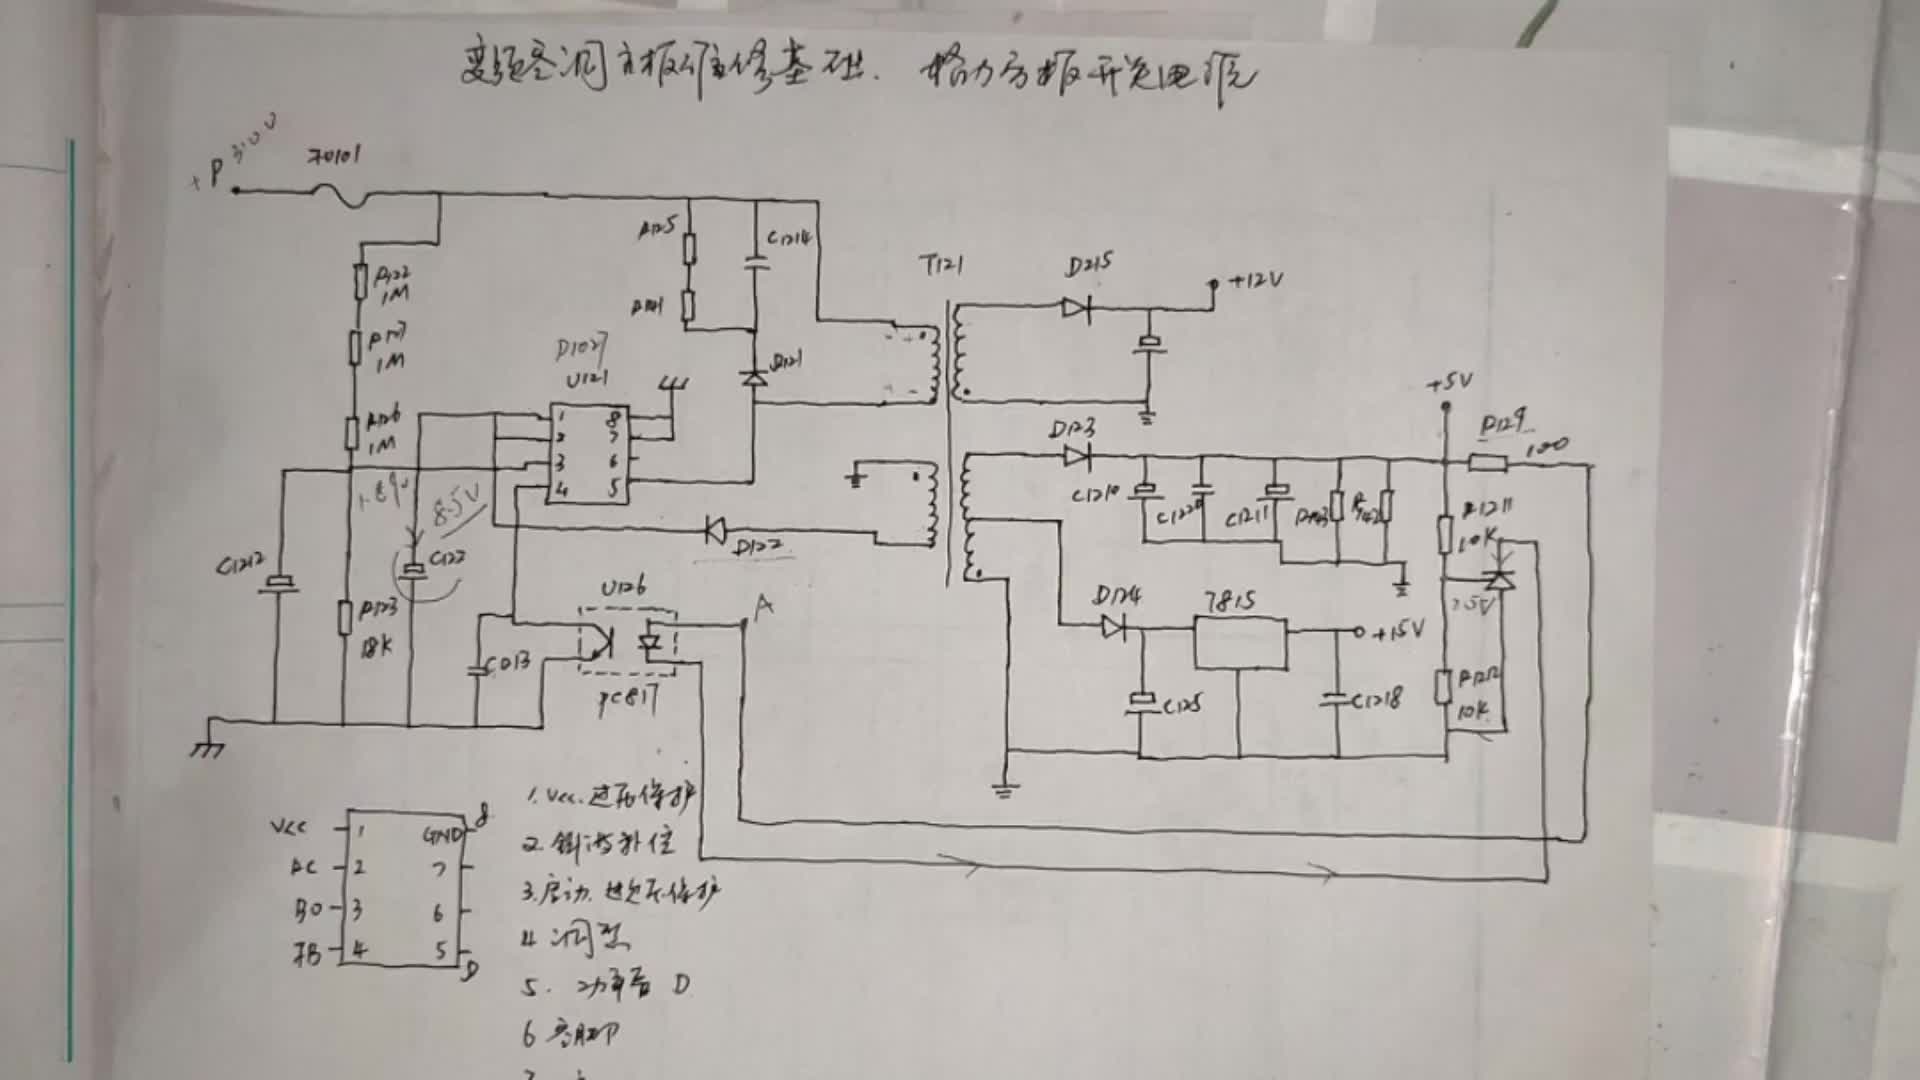 变频空调主板维修基础. 格力方板开关电源
+P 310V
F0101
R125
C1214
R122
1M
R127
1M
R126
1M
R141
D121
D1027
U121
1 8
2 7
3 6
4 5
T121
D215
+12V
D123
+5V
R129
100
C1210
C1220
C1211
R143
R142
R1211
10K
2.5V
1.89V
8.5V
C1212
C122
D122
R123
18K
C013
U126
PC817
A
D124
7815
+15V
C125
C1218
R1212
10K
VCC 1 GND 8
BC 2 7
BO 3 6
FB 4 5 D
1. Vcc. 过压保护
2. 斜波补偿
3. 启动. 过欠压保护
4 调整
5. 功率管 D
6 空脚